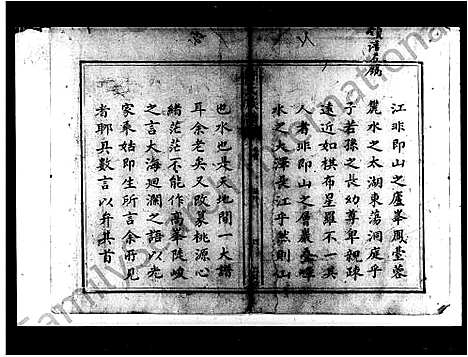 江非即山之廬峯鳳臺蓉
麓水之太湖東蕩洞庭乎
子若孫之長幼尊卑親疎
遠近如棋布星羅不一其
人者非即山之層巖疊嶂
水之大澤長江乎然則山
也水也是天地間一大譜
耳余老矣又啟慕桃源心
緒茫茫不能作高峯陡峻
之言大海廻瀾之語以光
家乘姑即生所言余所見
者聊具數言以弁其首